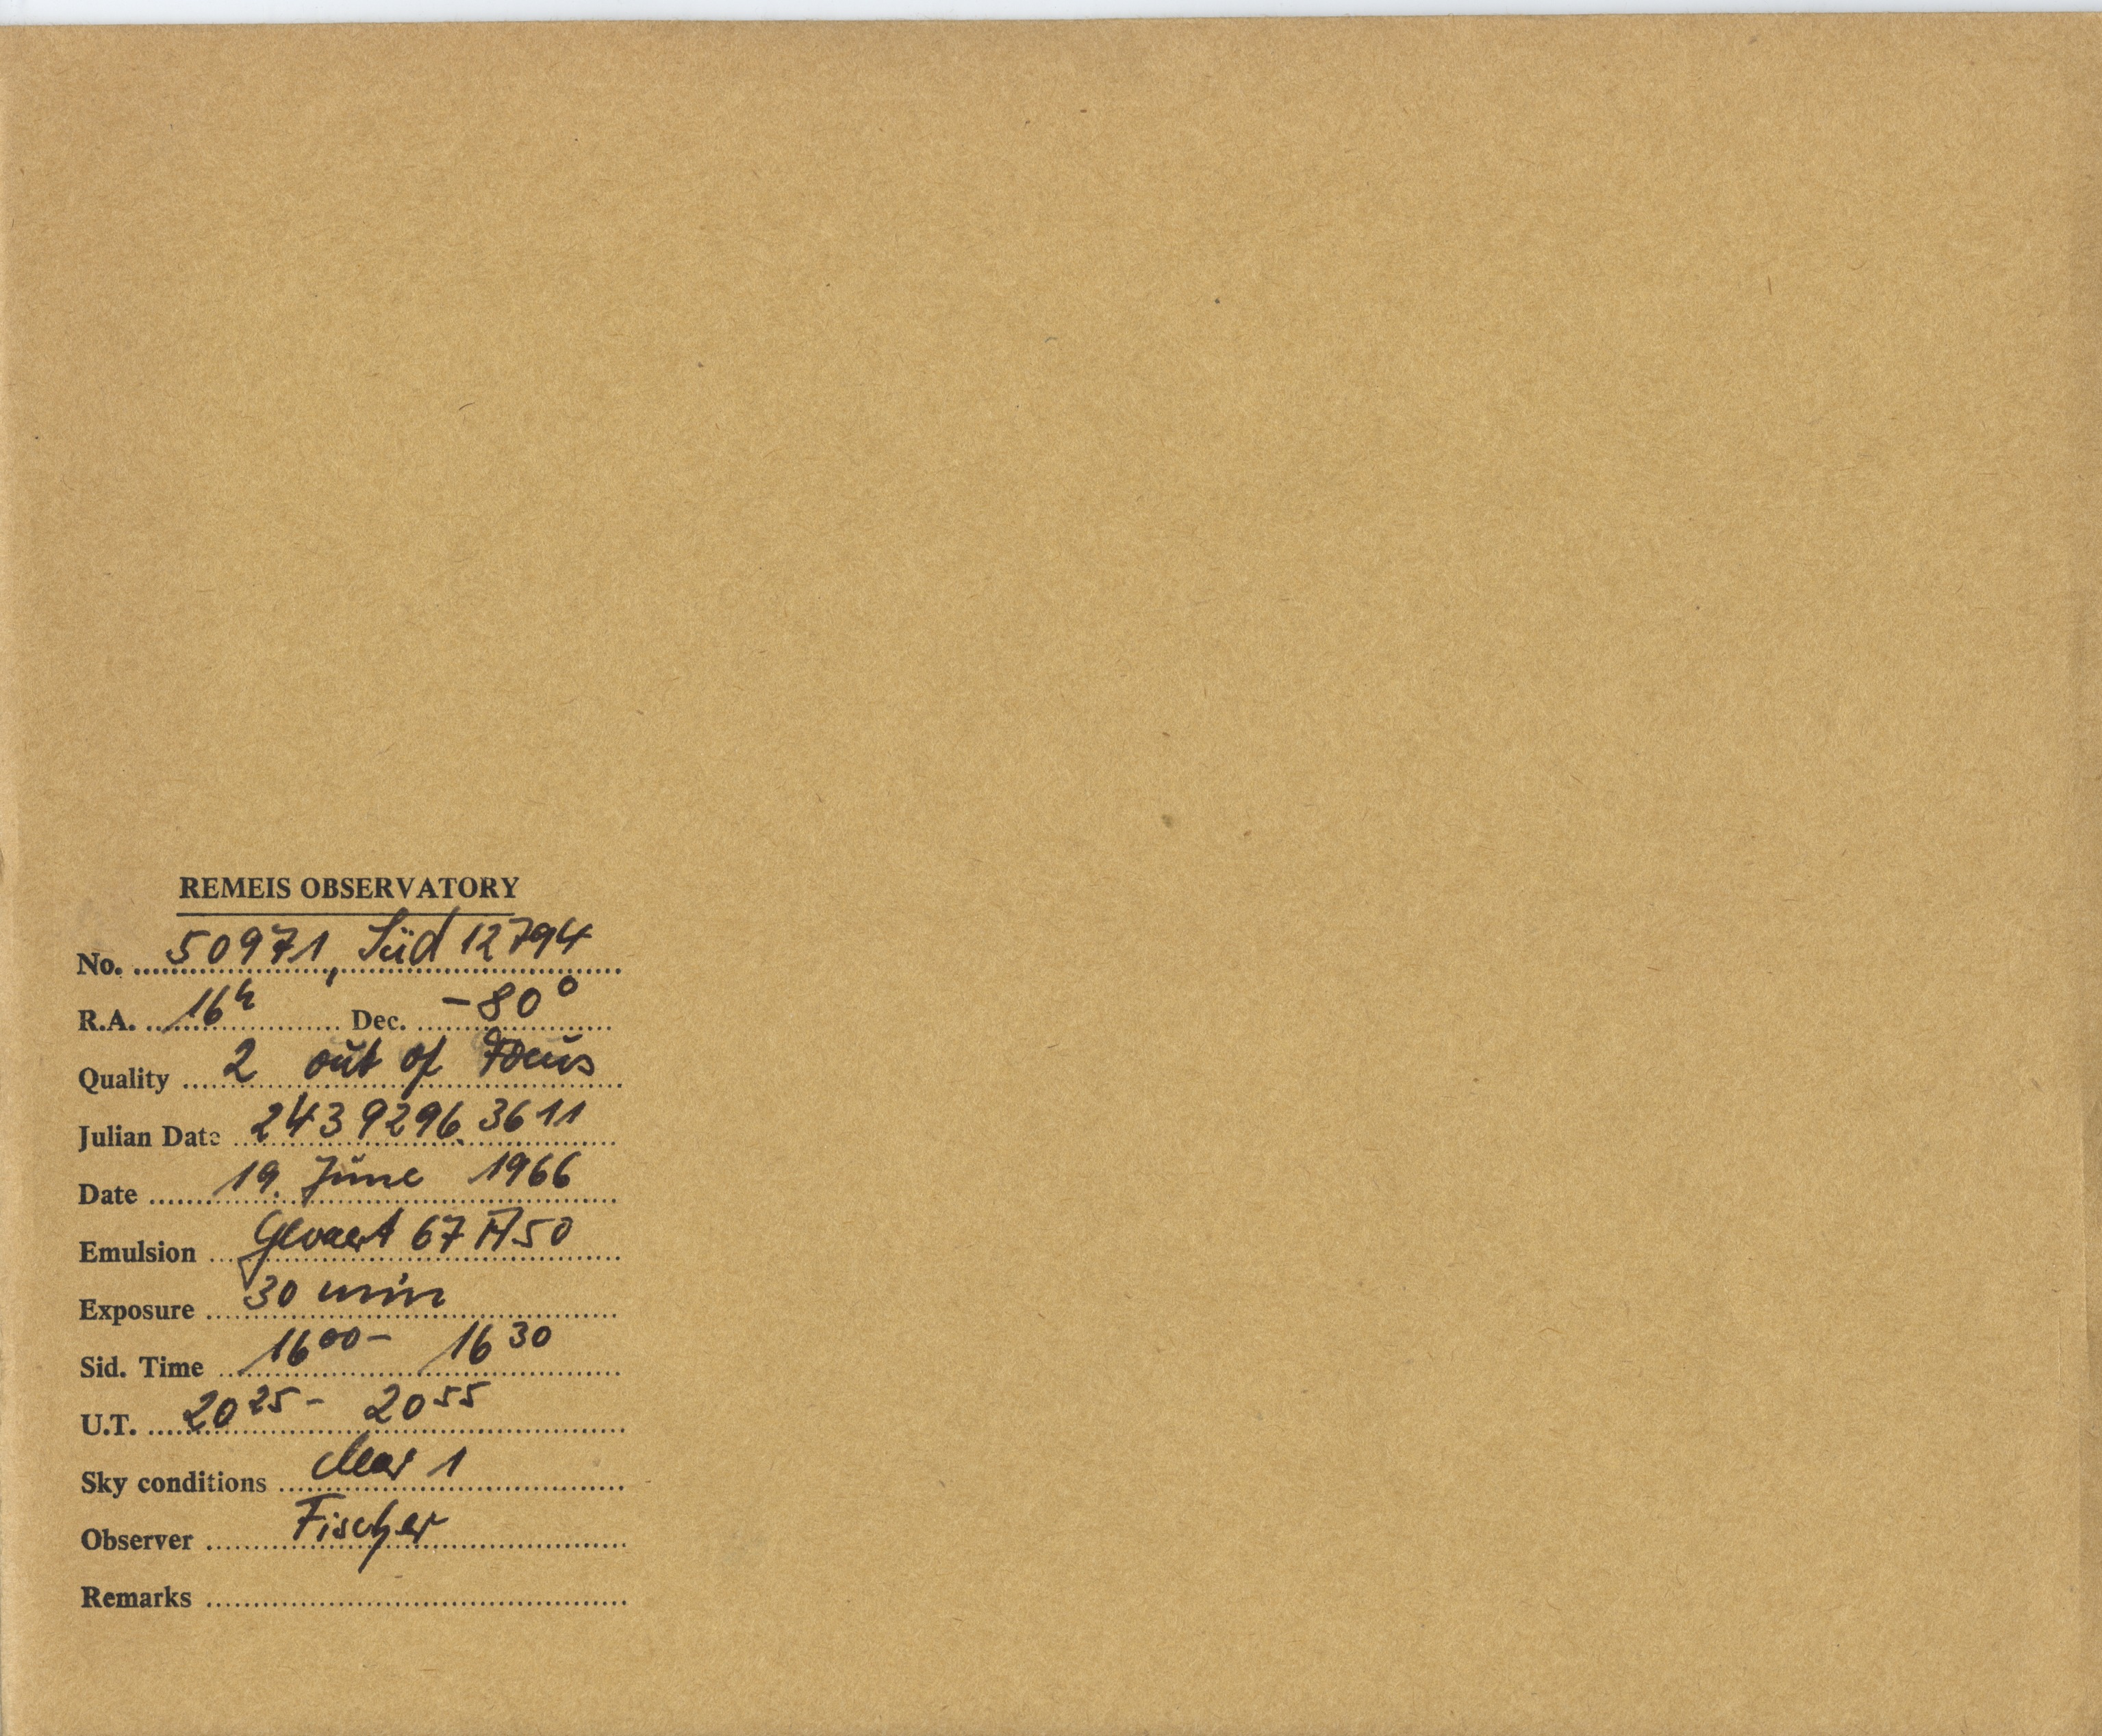 REMEIS OBSERVATORY
No. 50971, Süd 12794
R.A. 16h Dec. -80°
Quality 2 out of Focus
Julian Date 2439296.3611
Date 19. June 1966
Emulsion Gevaert 67 A50
Exposure 30 min
Sid. Time 16 00 - 16 30
U.T. 20 25 - 20 55
Sky conditions clear 1
Observer Fischer
Remarks